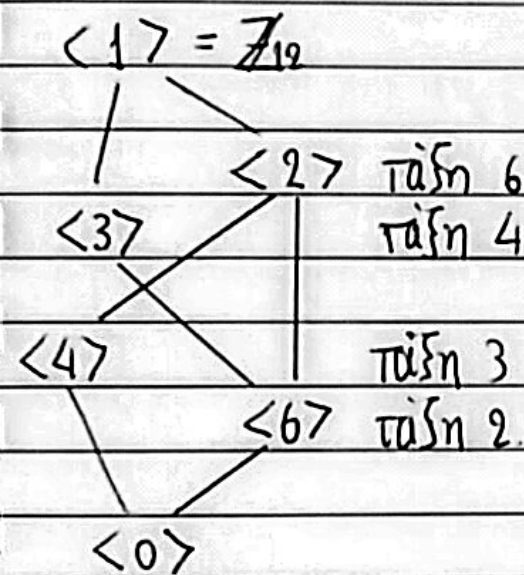 <1> = ℤ₁₂
<2> τάξη 6
<3> τάξη 4
<4> τάξη 3
<6> τάξη 2.
<0>